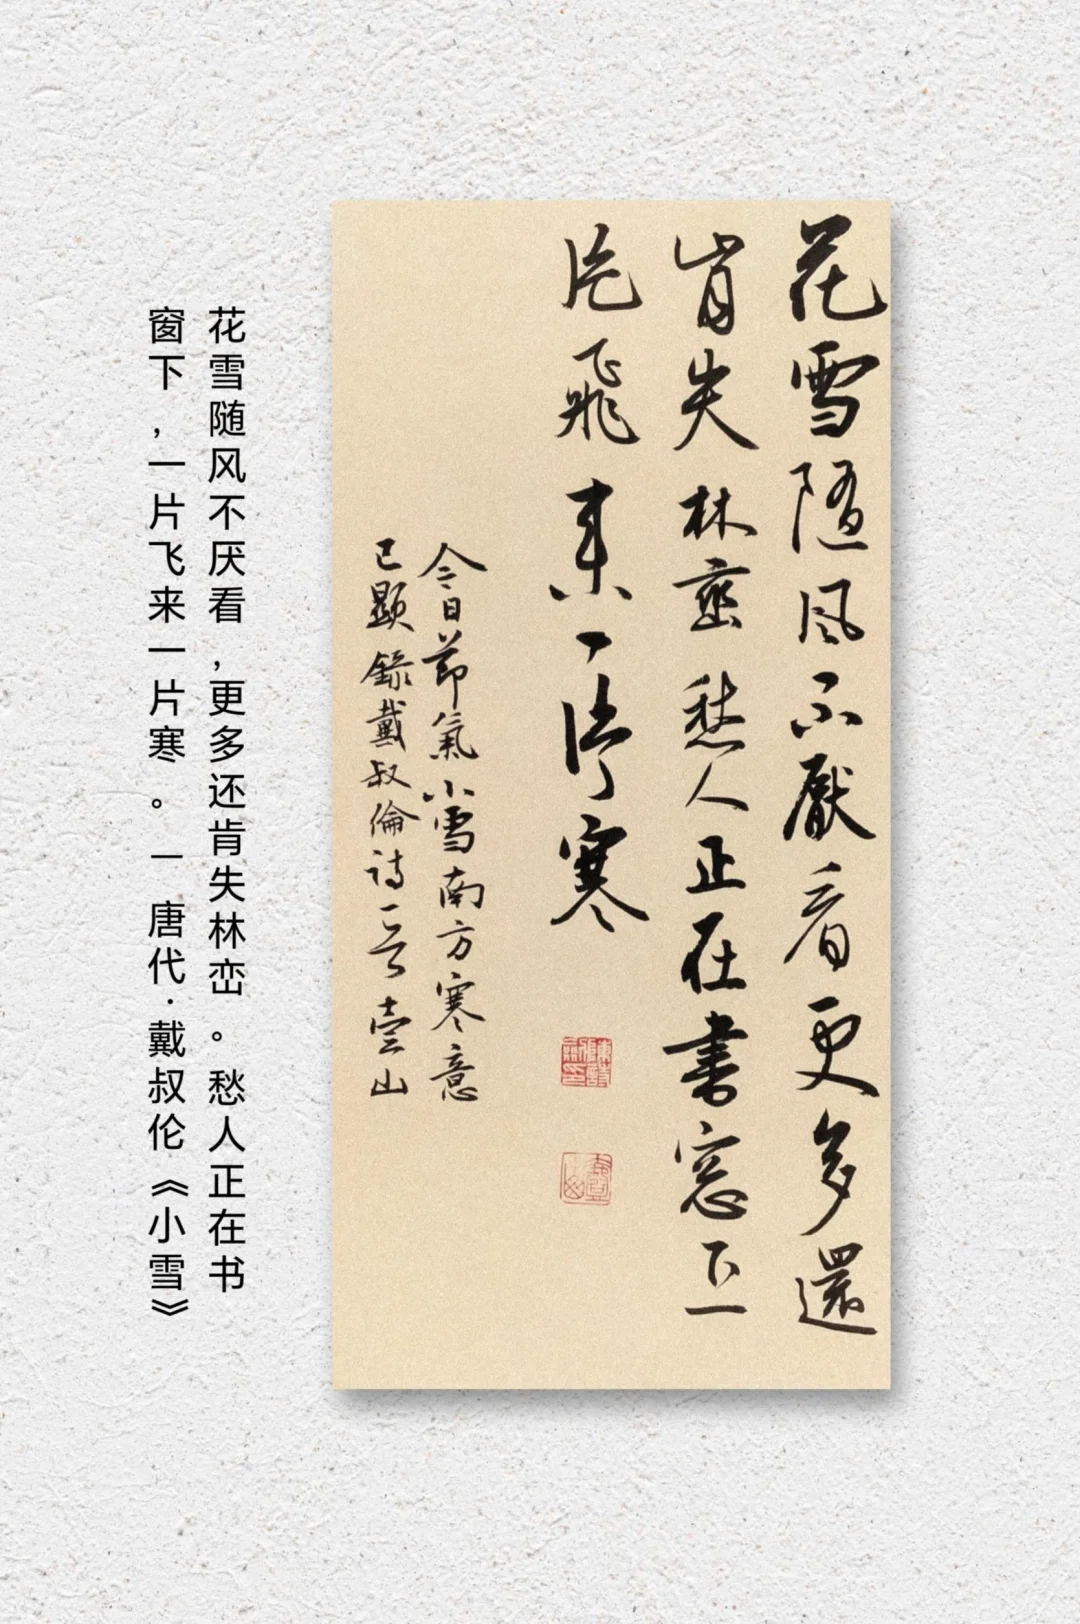 花雪隨風不厭看更多還
肯失林巒愁人正在書窓下一
片飛來一片寒
今日節氣小雪南方寒意
已顯錄戴叔倫诗一首壹山
花雪随风不厌看,更多还肯失林峦。愁人正在书
窗下,一片飞来一片寒。—唐代·戴叔伦《小雪》